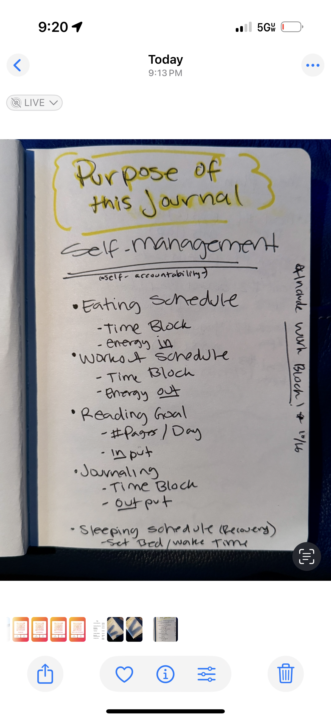 9:20
5G
Today
9:13 PM
LIVE
Purpose of
this Journal
Self-management
(self-accountability)
• Eating Schedule
- Time Block
- energy in
• Workout Schedule
- Time Block
- Energy out
• Reading Goal
- #Pages/Day
- input
• Journaling
- Time Block
- output
• Sleeping Schedule (Recovery)
- Set Bed/Wake Time
*Include Work Block!*